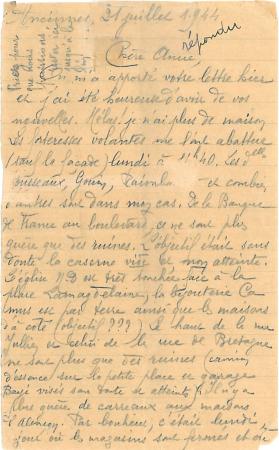 21 juillet 1944
répondu
Chère Anne,
On m'a apporté votre lettre hier
et j'ai été heureuse d'avoir de vos
nouvelles. Hélas, je n'ai plus de maison
Les forteresses volantes me l'ont abattue
(sauf la façade) lundi à 11h40. Les
et combien
d'autres sont dans mon cas. De la Banque
de France au boulevard, ce ne sont plus
guère que des ruines. L'objectif était sans
doute la caserne non atteinte.
L'église N.D est très touchée face à la
place Lamagdelaine, la bijouterie Ca
mus est par terre ainsi que les maisons
à côté (objectif ???) Le haut de la rue
Jullien et celui de la rue de Bretagne
ne sont plus que des ruines (camion
d'essence sur la petite place et garage
visés sans doute et atteints) Il n'y a
plus guère de carreaux aux maisons
d'Alençon. Par bonheur, c'était lundi
jour où les magasins sont fermés et où